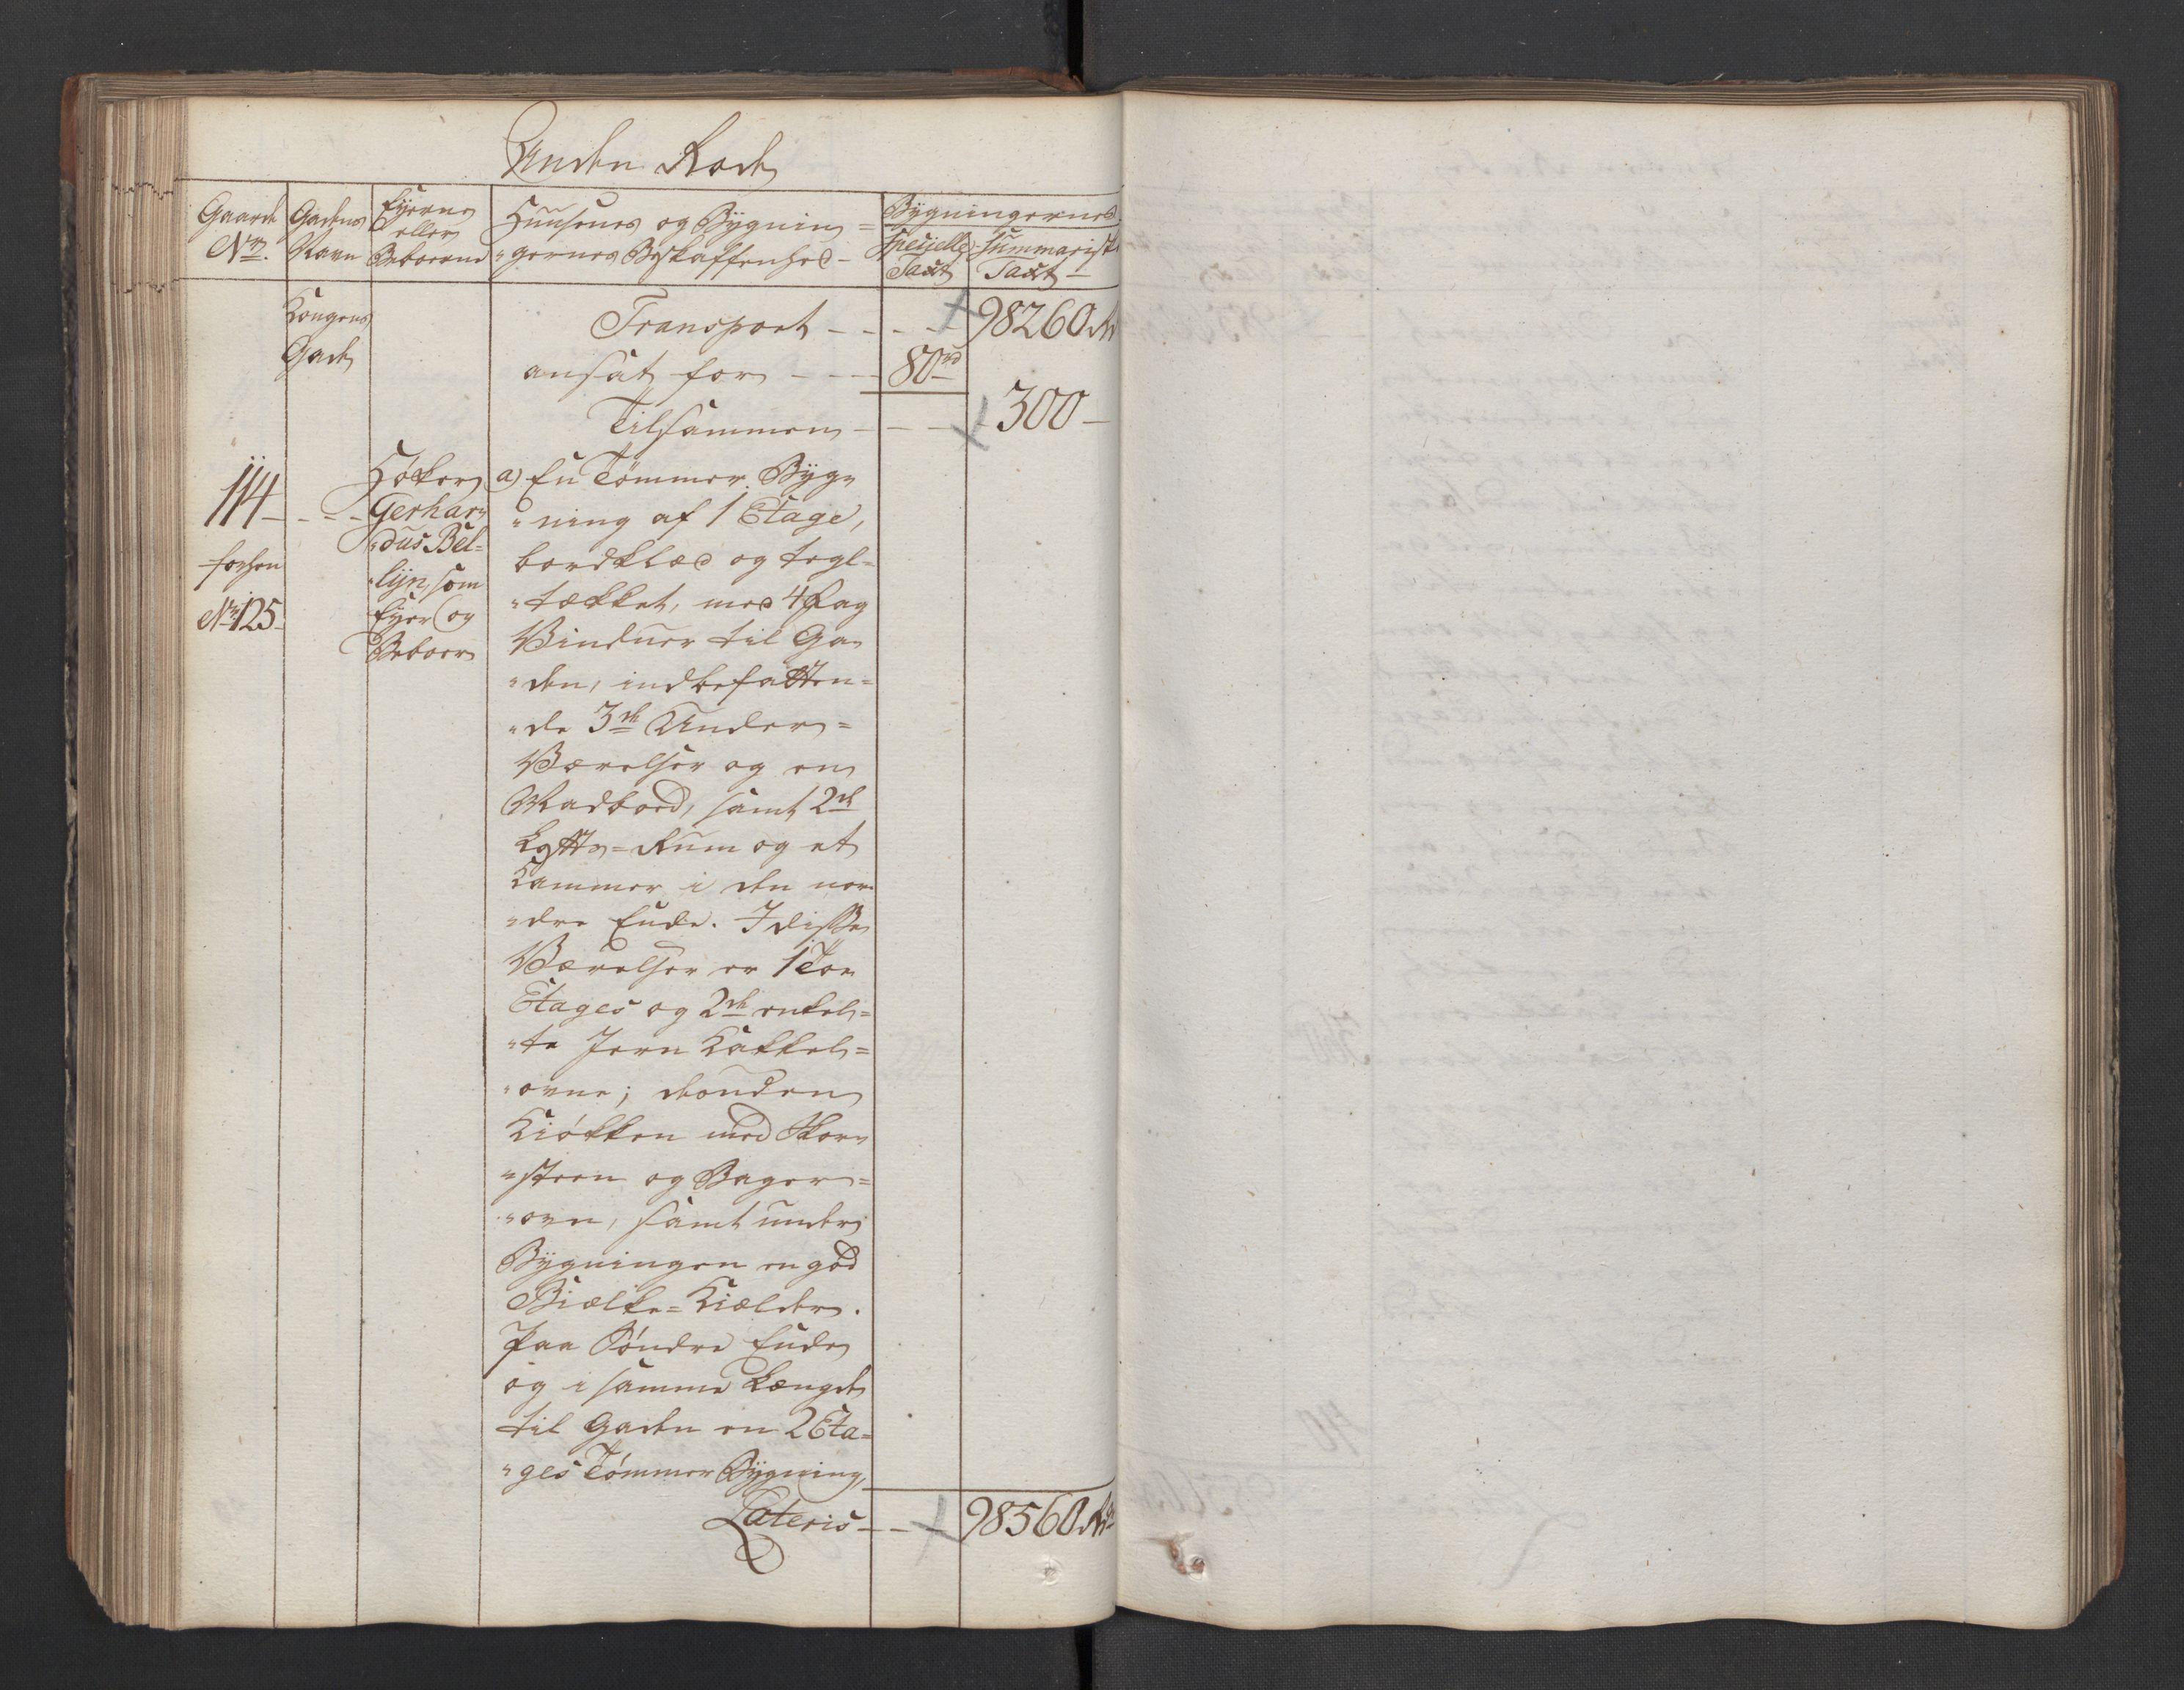 Anden Rode
Gaards No. | Gadens Navn | Eyerne eller Beboerne | Huusenes og Bÿgnin=gernes Beskaffenhed | Bÿgningernes Specielle Taxt | Summariske Taxt
Kongens Gade
Transport - - - - 98260 Rd
ansat for - - - 80 rd
Tilsammen - - - 300 -
114 - - - -
forhen
No 125
Høker
Gerhar=
"dus Bel=
"lijn, som
Eÿer og
Beboer
a) En Tømmer Bÿg=
"ning af 1 Etage,
bordklæd og tegl=
"tækket, med 4 Fag
Vinduer til Ga=
"den, indbefatten=
"de 3de Under=
Værelser og en
Madbod, samt 2de
Lofts=Rum og et
Kammer i den nor=
"dre Ende. I disse
Værelser er 1 Toe
Etages og 2de enkel=
"te Jern Kakkel=
"ovne; desuden
Kiøkken med Skor=
"steen og Bager=
"ovn, samt under
Bÿgningen en god
Bielke=Kielder.
Paa Søndre Ende
og i samme Længde
til Gaden en 2 Eta=
"ges Tømmer Bÿgning,
Lateris - - - 98560 Rd